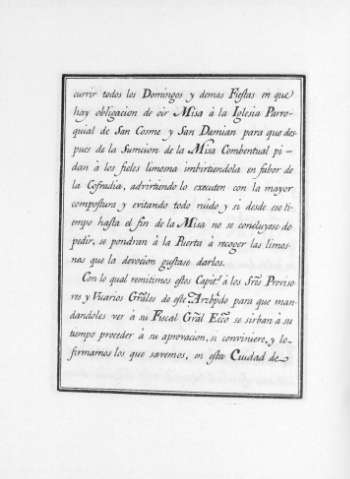 currir todos los Domingos y demás Fiestas en que
hay obligacion de oir Misa à la Iglesia Parro-
quial de San Cosme y San Damian para que des-
pues de la Sumcion de la Misa Combentual pi-
dan à los fieles limosna imbirtiendola en fabor de
la Cofradia, advirtiendo lo executen con la mayor
compostura y evitando todo ruido y si desde ese ti-
empo hasta el fin de la Misa no se concluyase de
pedir, se pondran à la Puerta à recoger las limos-
nas que la devocion gustase darlos.
Con lo qual remitimos estos Capit.s à los Sres Proviso
res y Vicarios Grales de este Arzbpdo para que man-
dandoles ver à su Fiscal Gral Ecco se sirban à su
tiempo proceder à su aprovacion, si conviniere, y lo
firmamos los que savemos, en esta Ciudad de